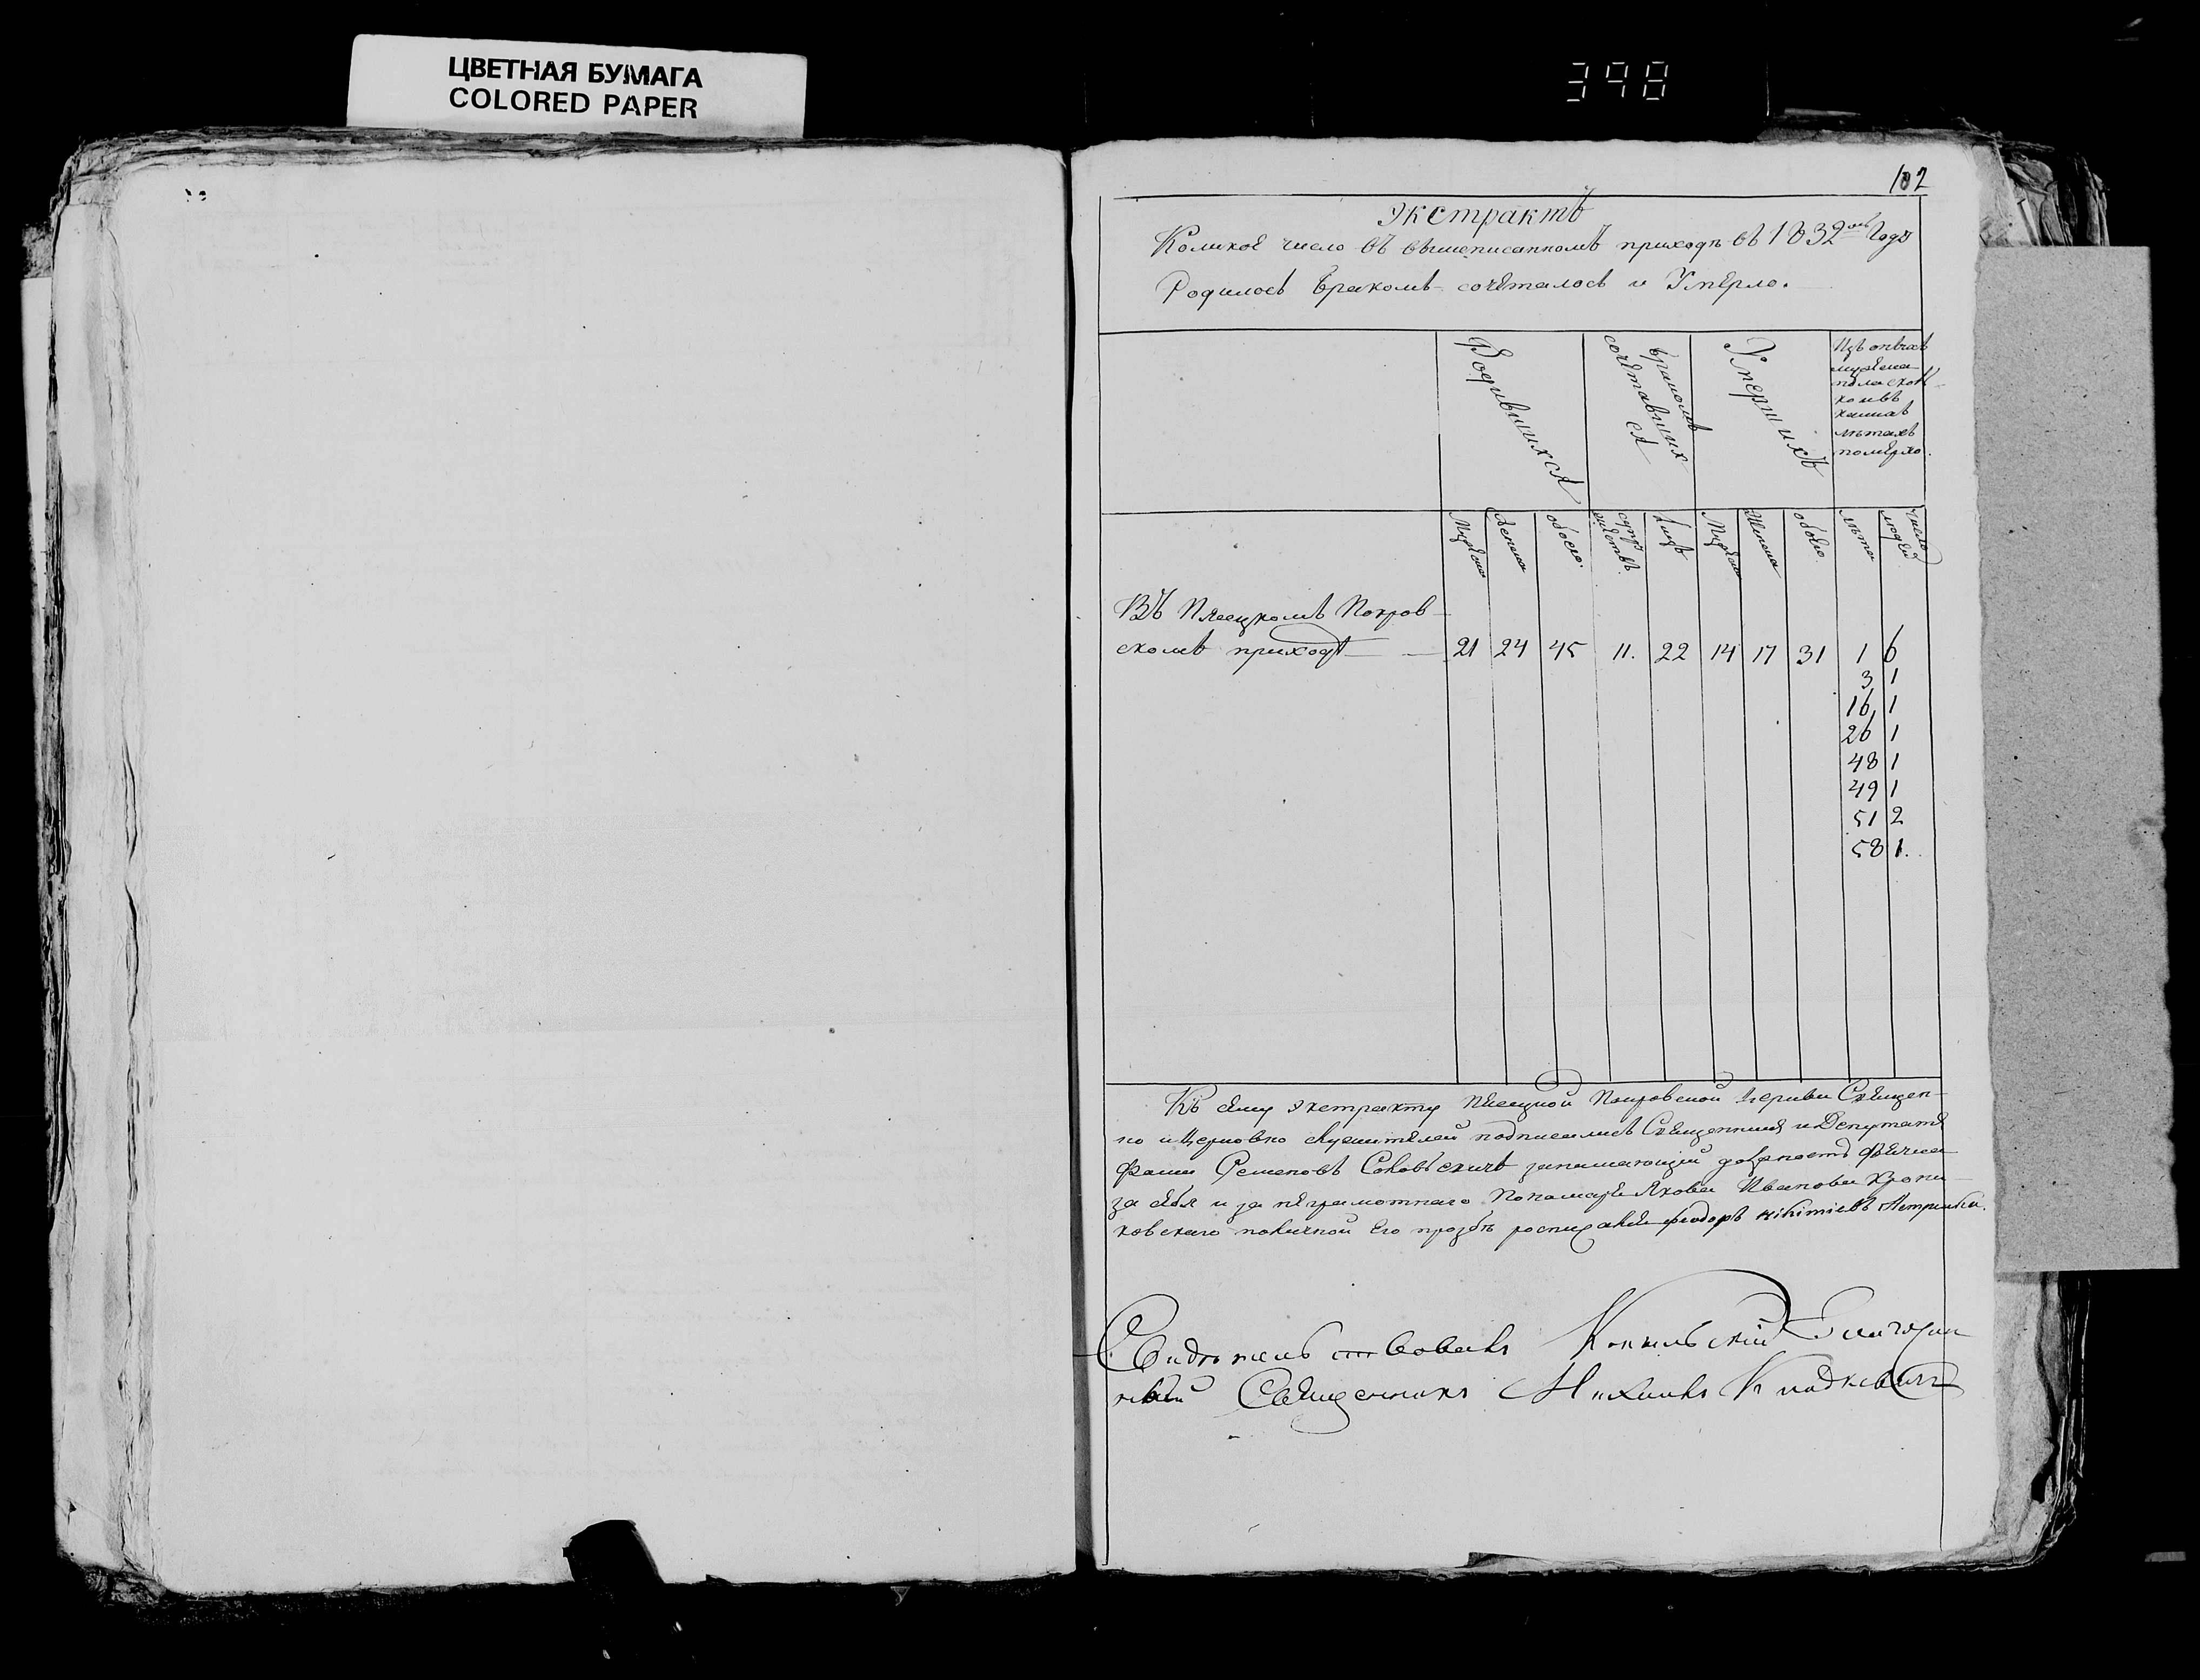 ЦВЕТНАЯ БУМАГА
COLORED PAPER
398
102
Экстрактъ
Коликое число въ вышеписанномъ приходѣ въ 1832мъ Годѣ
Родилось бракомъ сочеталось и Умерло.
Родившихся
бракомъ
сочетавших
ся
Умершихъ
Изъ онаго
мужеска
пола
кихъ
лѣтахъ
померло.
Мужеска
Женска
обоего.
супру
жествъ.
Лицъ
Мужеска
Женска
обоего
лѣта
число
людей
Въ Пясецкомъ Покров
скомъ приходѣ 21 24 45 11. 22 14 17 31 1 6
3 1
16 1
26 1
48 1
49 1
51 2
58 1.
Къ сему экстракту Пясецкой Покровской Церкви Священ-
но и Церковно служителей подписались Священникъ и Депутатъ
Семеновъ занимающій должность
за себя и за неграмотнаго Пономаря Якова Иванова
ковскаго по личной Его прозбѣ росписался Феодоръ
Свидѣтельствовалъ Копыльскій Благочин
ный Священникъ Михаилъ